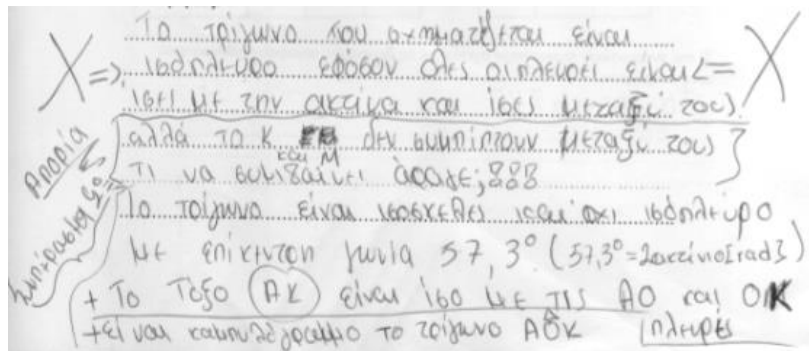 Το τρίγωνο που σχηματίζεται είναι
X => ισόπλευρο εφόσον όλες οι πλευρές είναι <= X
ίσες με την ακτίνα και ίσες μεταξύ τους.
Απορία
αλλά το Κ και Μ δεν συμπίπτουν μεταξύ τους
Τι να συμβαίνει άραγε;
Συμπέρασμα
Το τρίγωνο είναι ισοσκελές και όχι ισόπλευρο
με επίκεντρη γωνία 57,3° (57,3°=1ακτίνιο[rad])
+ Το τόξο (ΑΚ) είναι ίσο με τις ΑΟ και ΟΚ
πλευρές
+είναι καμπυλόγραμμο το τρίγωνο ΑΟΚ